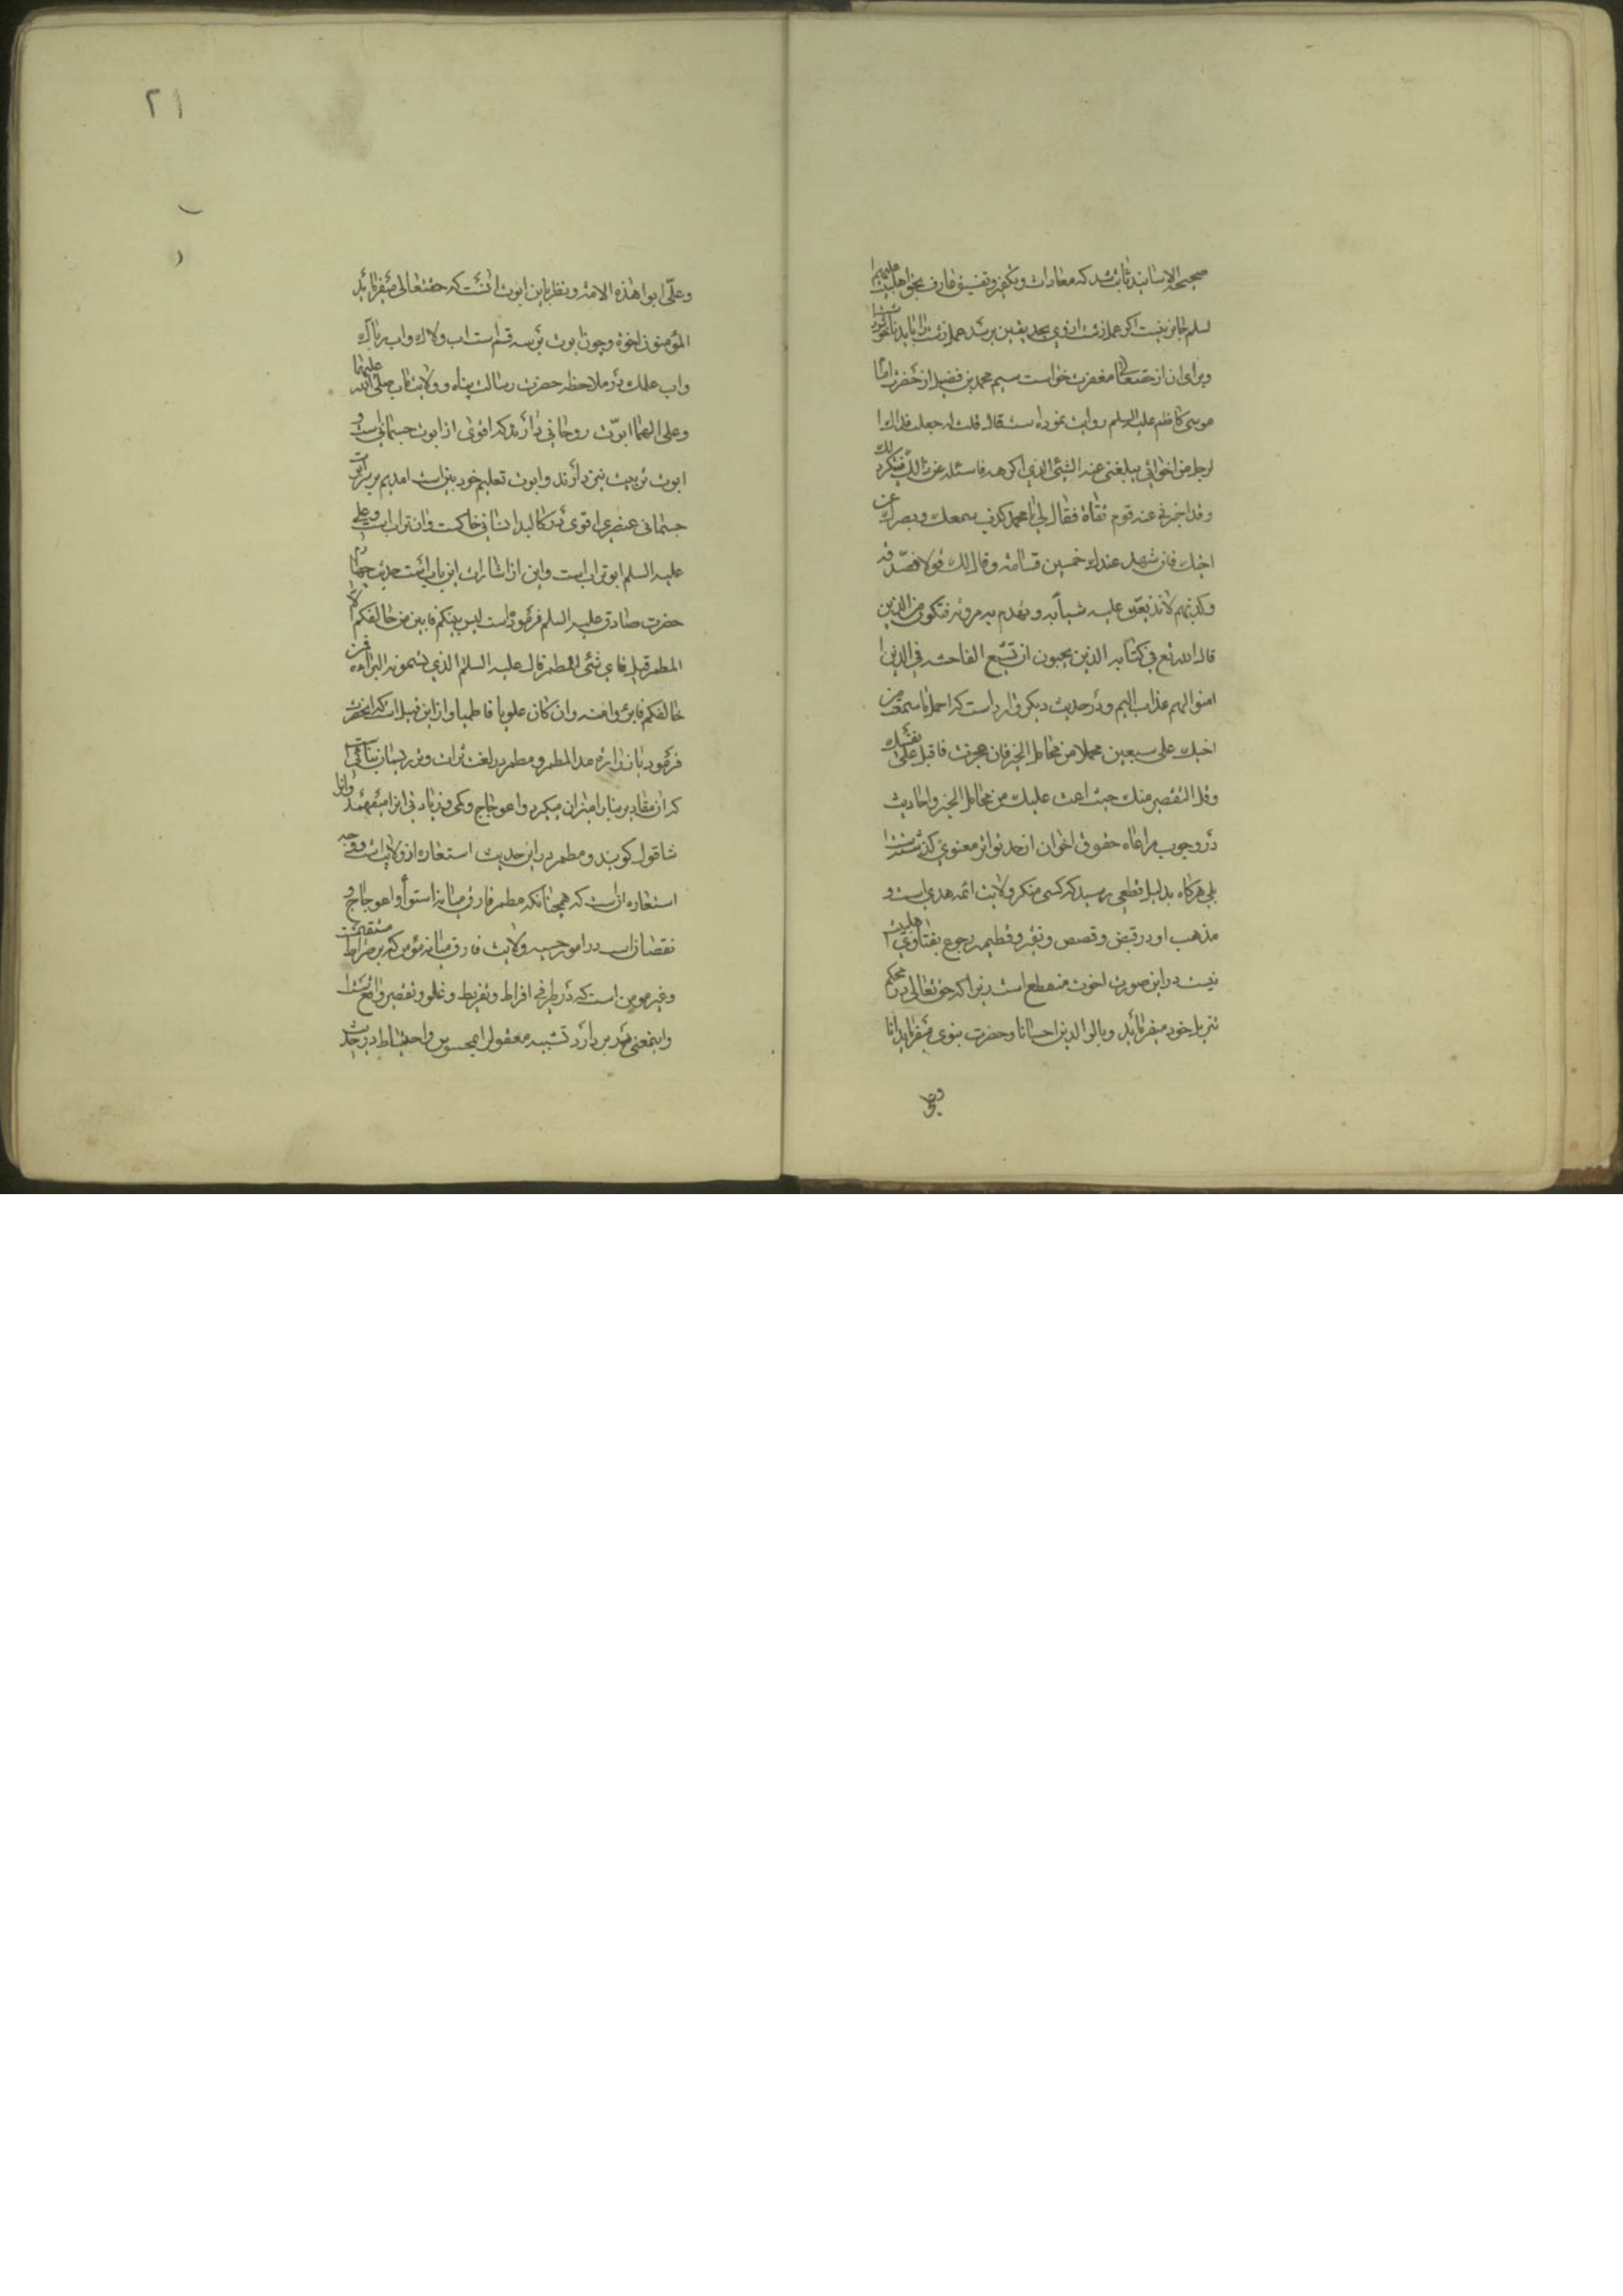 صحیحة الاسانید ثابت شد که معادات و تکفیر و تفسیق عارف بحق اهلبیت علیهم ا
لسلم جایز نیست اگر عمل زشت از وی بحد یقین برسد عمل زشت را باید ناخوش داشت
و برای ان از حقتعالی مغفرت خواست سیم محمد بن فضیل از حضرت امام
موسی کاظم علیه السلم روایت نموده است قال قلت له جعلت فداك ا
لرجل من اخوانی یبلغنی عنه الشئ الذی اکرهه فاسئله عن ذالك فینکر ذلك
و قد اخبرنی عنه قوم ثقاة فقال لی یا محمد کذب سمعك و بصرك عن
اخیك فان شهد عندك خمسین قسامة و قال لك قولا فصدقه
و کذبهم لا تذیعن علیه شیأ به و تهدم به مروته فتکون من الذین
قال الله تع فی کتابه الذین یحبون ان تشیع الفاحشه فی الذین ا
امنوا لهم عذاب الیم و در حدیث دیکر وارد است که احمل ما سمعت من
اخیك علی سبعین محملا من محامل الخیر فان عجزت فاقبل علی نفسك
و قل التقصیر منك حیث اعیت علیك من محامل الخیر و احادیث
در وجوب مراعاه حقوق اخوان از حد تواتر معنوی کذشته است
بلی هرکاه بدلیل قطعی رسید که کسی منکر ولایت ائمه هدی است و
مذهب او در قبض و قصص و نقیر و قطمیر رجوع بفتاوی اهلبیت
نیست در این صورت اخوت منقطع است زیرا که حق تعالی در محکم
تنزیل خود میفرماید و بالوالدین احسانا و حضرت نبوی میفرماید انا
و علی
۲۱
و علی ابوا هذه الامة و نظر باین ابوت است که حقتعالی میفرماید
المؤمنون اخوة و چون ابوت بر سه قسم است اب ولادك و اب رباك
و اب علمك در ملاحظه حضرت رسالت پناه و ولایت ماب صلی الله علیهما
و علی الهما ابوت روحانی دارند که اقوی از ابوت جسمانی است و
ابوت تربیت نیز دارند و ابوت تعلیم خود بین است امدیم بر سر ابوت
جسمانی عنصر اقوی در کالبد انسانی خاکست و ان تراب است و علی
علیه السلم ابو تراب است و این از اشارات این باب است حدیث چهارم
حضرت صادق علیه السلم فرموده است لیس بینکم و بین من خالفکم الا
المطمر قیل فای شئ المطمر قال علیه السلم الذی تسمونه التر فمن
خالفکم فابرؤا منه و ان کان علویا فاطمیا و از این قبیل است که انحضرت
فرمود یا زراره مد المطمر و مطمر در لغت تر است و تر ریسمان بنائی است
که از مقادیر بنا را میزان میکیرد و اعوجاج و کمی و زیادتی انرا میفهمند و انرا
شاقول کویند و مطمر در این حدیث استعاره از ولایت است و وجه
استعاره انست که همچنانکه مطمر فارق میانه استوا و اعوجاج و
نقصان است در امور حسیه ولایت فارق میانه مؤمن که بر صراط مستقیم است
و غیر مومن است که در طرفی افراط و تفریط و غلو و تقصیر واقع شده است
و اینمعنی در بر دارد تشبیه معقول را بمحسوس و احتیاط در حدیث